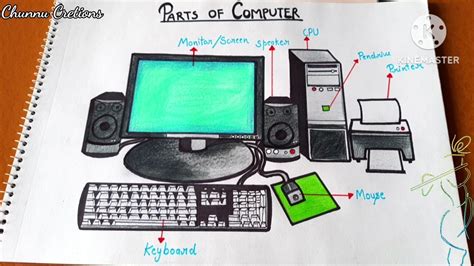 Chunnu Cretions
PARTS OF COMPUTER
KINEMASTER
Monitor/Screen
speaker
CPU
Pendrive
Printer
Mouse
Keyboard